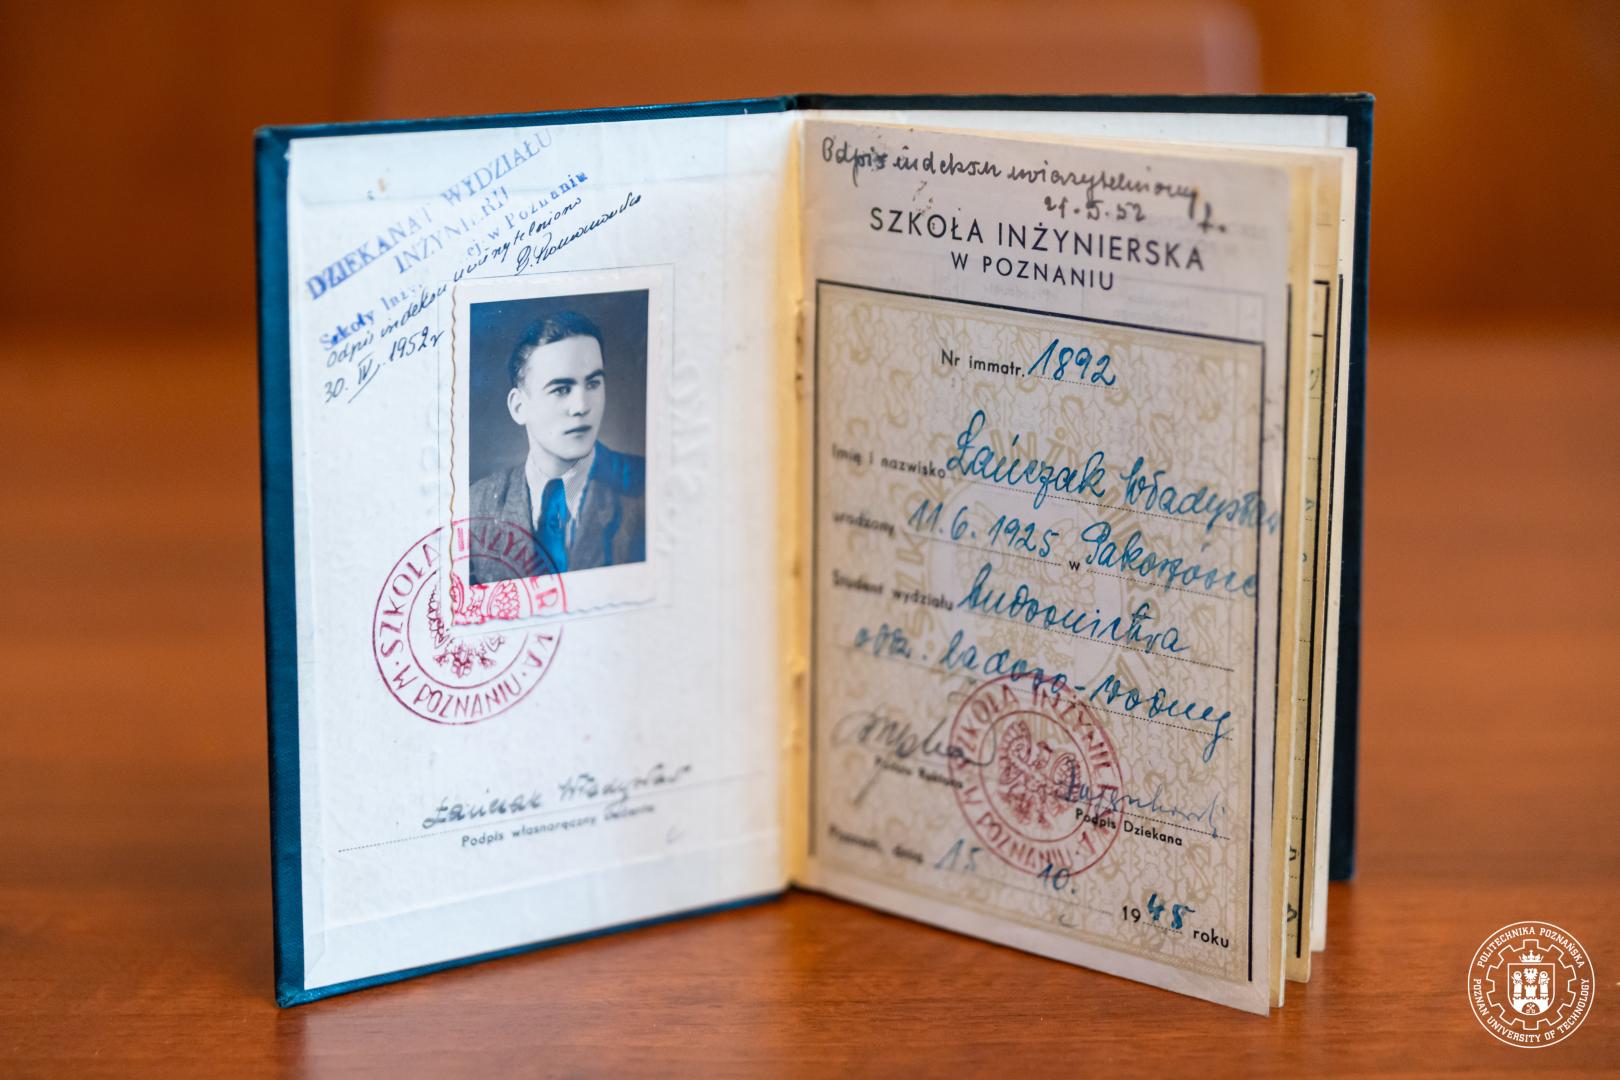 DZIEKANAT WYDZIAŁU
INŻYNIERII
Szkoły Inż. w Poznaniu
Odpis indeksu uwierzytelniono
30. IV. 1952 r
SZKOŁA INŻYNIERSKA
W POZNANIU
Łańczak Władysław
Podpis własnoręczny
Odpis indeksu uwierzytelniony
SZKOŁA INŻYNIERSKA
W POZNANIU
Nr immatr. 1892
Imię i nazwisko Łańczak Władysław
urodzony 11.6.1925 w
Student wydziału budownictwa
lądowo-wodny
SZKOŁA INŻYNIERSKA
W POZNANIU
Podpis Rektora
Podpis Dziekana
Poznań, dnia 15 10. 1945 roku
POLITECHNIKA POZNAŃSKA
POZNAN UNIVERSITY OF TECHNOLOGY